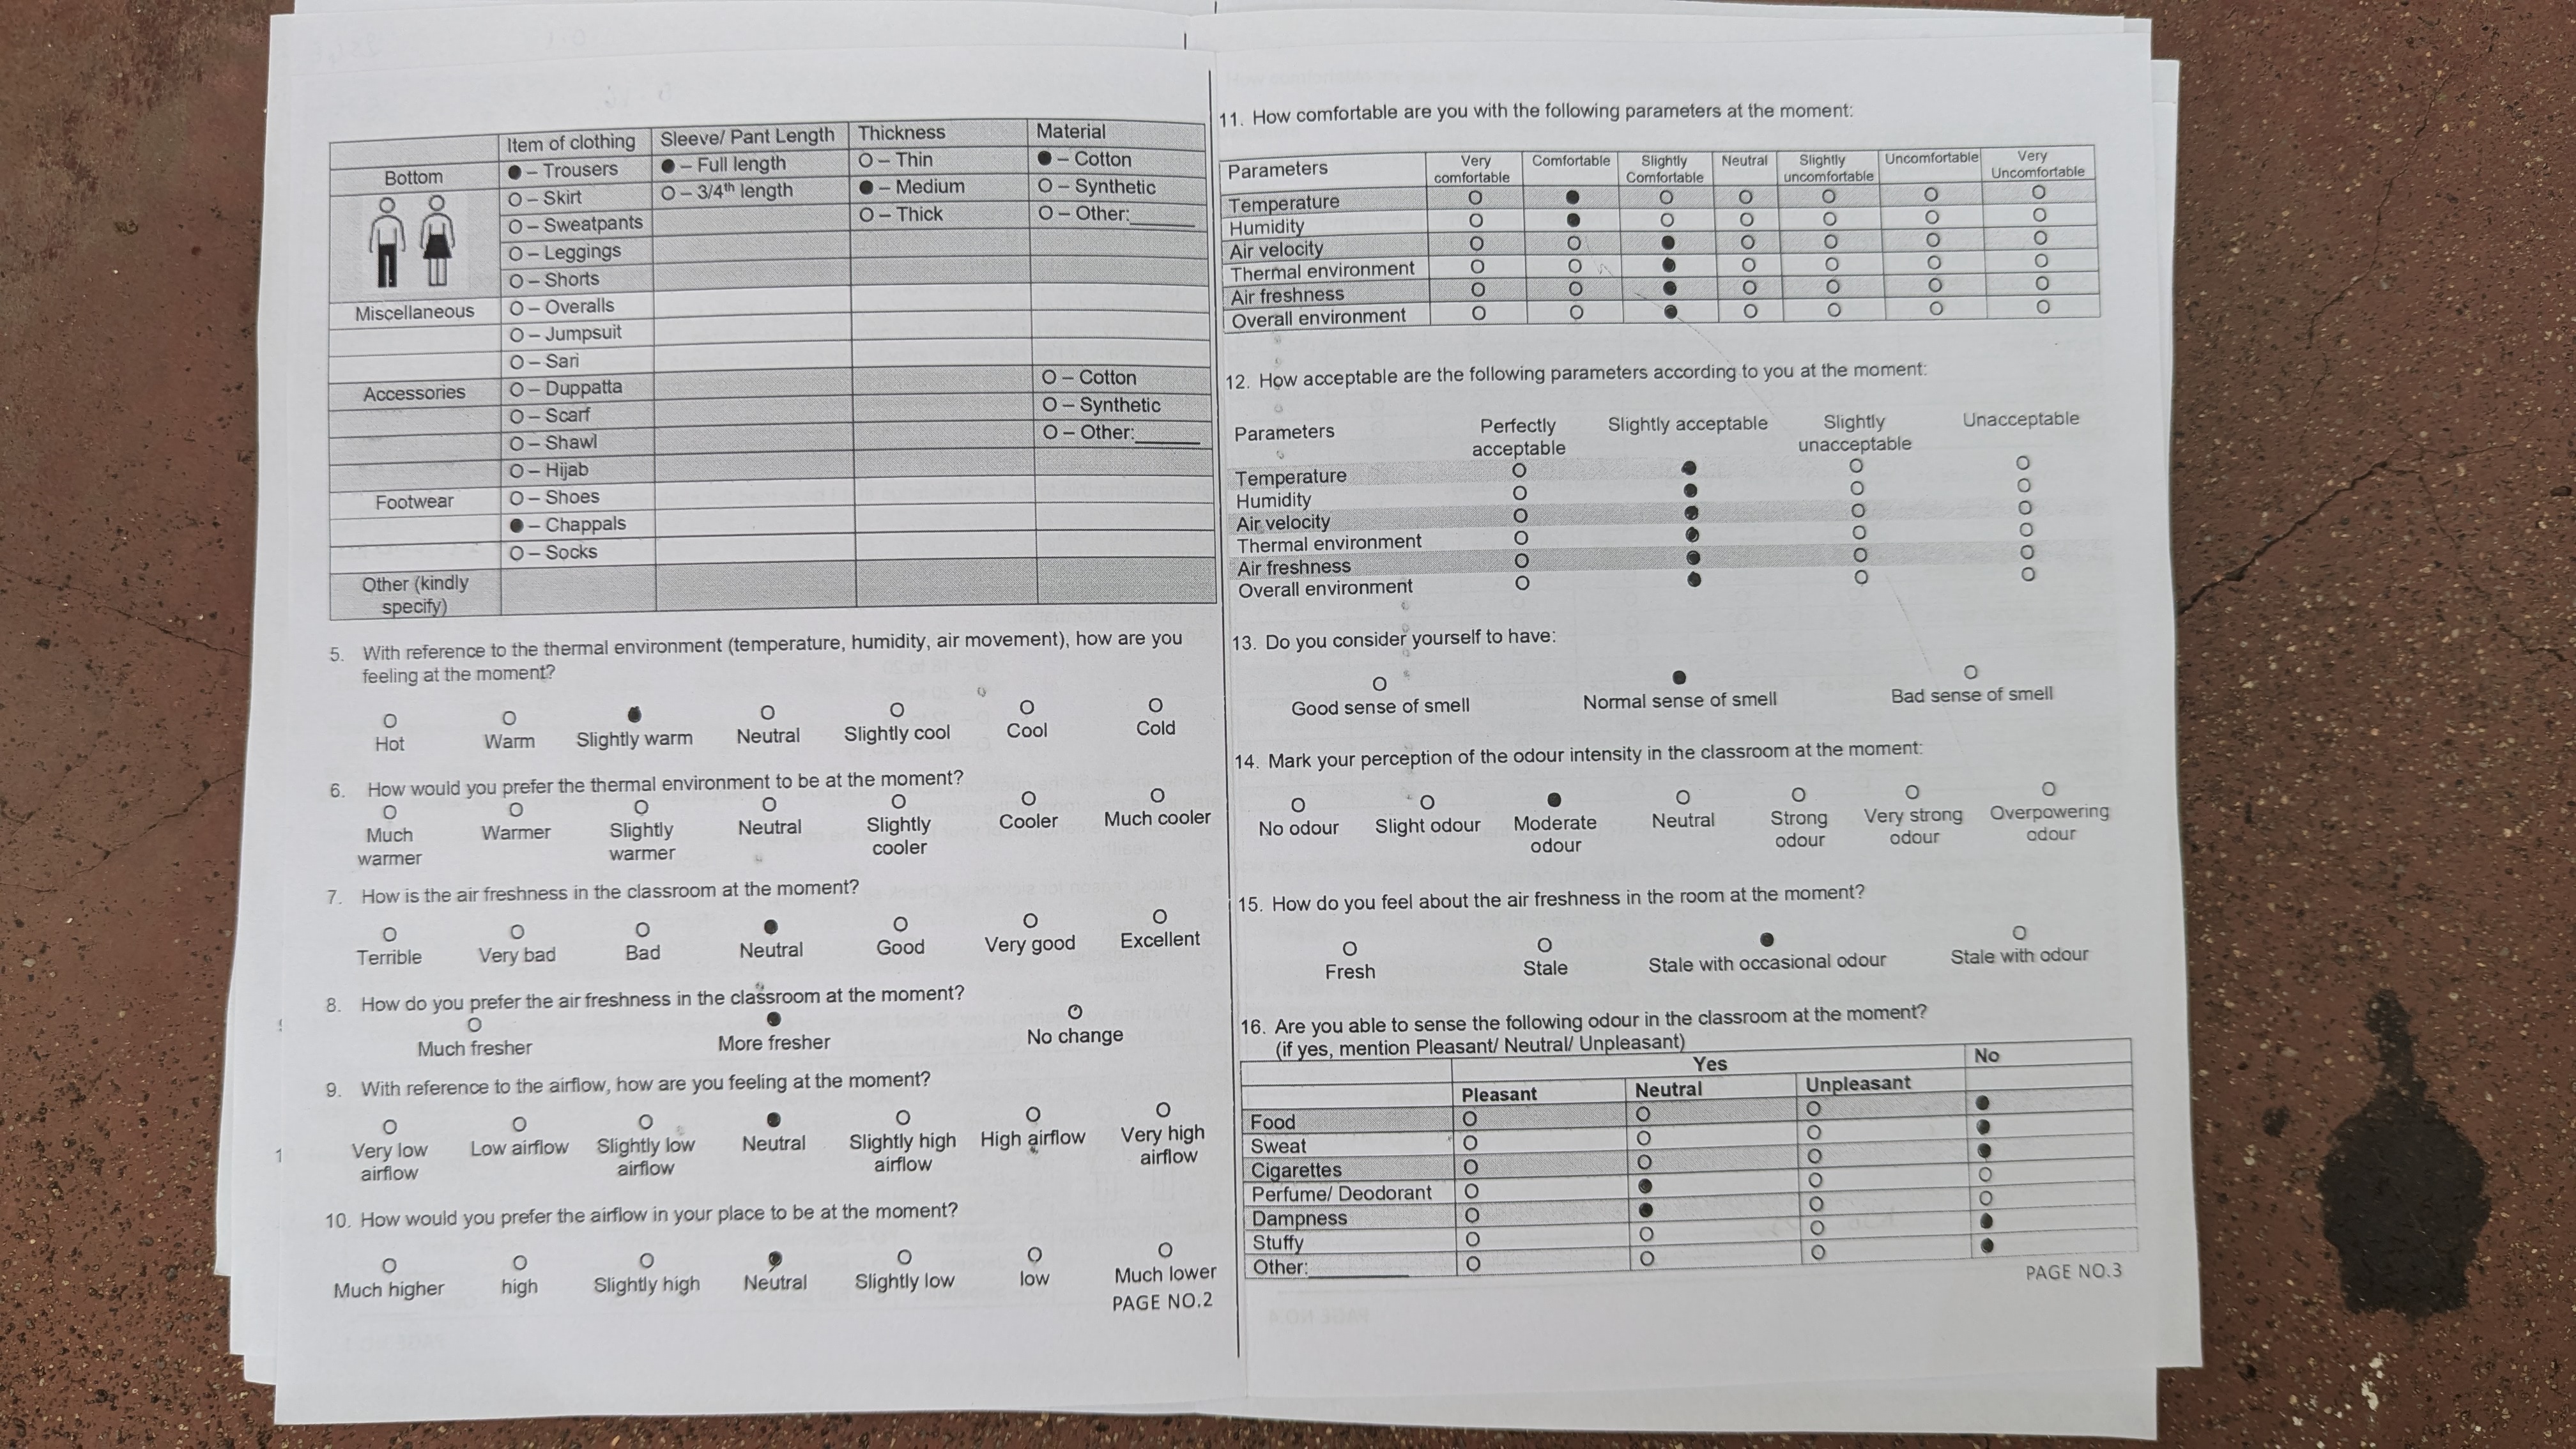 Item of clothing Sleeve/ Pant Length Thickness Material
Bottom ● – Trousers ● – Full length O – Thin ● – Cotton
O – Skirt O – 3/4th length ● – Medium O – Synthetic
O – Sweatpants O – Thick O – Other:______
O – Leggings
O – Shorts
Miscellaneous O – Overalls
O – Jumpsuit
O – Sari
Accessories O – Duppatta O – Cotton
O – Scarf O – Synthetic
O – Shawl O – Other:______
O – Hijab
Footwear O – Shoes
● – Chappals
O – Socks
Other (kindly
specify)
5. With reference to the thermal environment (temperature, humidity, air movement), how are you
feeling at the moment?
O O ● O O O O
Hot Warm Slightly warm Neutral Slightly cool Cool Cold
6. How would you prefer the thermal environment to be at the moment?
O O O O O O O
Much Warmer Slightly Neutral Slightly Cooler Much cooler
warmer warmer cooler
7. How is the air freshness in the classroom at the moment?
O O O ● O O O
Terrible Very bad Bad Neutral Good Very good Excellent
8. How do you prefer the air freshness in the classroom at the moment?
O ● O
Much fresher More fresher No change
9. With reference to the airflow, how are you feeling at the moment?
O O O ● O O O
Very low Low airflow Slightly low Neutral Slightly high High airflow Very high
airflow airflow airflow airflow
10. How would you prefer the airflow in your place to be at the moment?
O O O ● O O O
Much higher high Slightly high Neutral Slightly low low Much lower
PAGE NO.2
11. How comfortable are you with the following parameters at the moment:
Parameters Very Comfortable Slightly Neutral Slightly Uncomfortable Very
comfortable Comfortable uncomfortable Uncomfortable
Temperature O ● O O O O O
Humidity O ● O O O O O
Air velocity O O ● O O O O
Thermal environment O O ● O O O O
Air freshness O O ● O O O O
Overall environment O O ● O O O O
12. How acceptable are the following parameters according to you at the moment:
Parameters Perfectly Slightly acceptable Slightly Unacceptable
acceptable unacceptable
Temperature O ● O O
Humidity O ● O O
Air velocity O ● O O
Thermal environment O ● O O
Air freshness O ● O O
Overall environment O ● O O
13. Do you consider yourself to have:
O ● O
Good sense of smell Normal sense of smell Bad sense of smell
14. Mark your perception of the odour intensity in the classroom at the moment:
O O ● O O O O
No odour Slight odour Moderate Neutral Strong Very strong Overpowering
odour odour odour odour
15. How do you feel about the air freshness in the room at the moment?
O O ● O
Fresh Stale Stale with occasional odour Stale with odour
16. Are you able to sense the following odour in the classroom at the moment?
(if yes, mention Pleasant/ Neutral/ Unpleasant)
Yes No
Pleasant Neutral Unpleasant
Food O O O ●
Sweat O O O ●
Cigarettes O O O ●
Perfume/ Deodorant O ● O O
Dampness O ● O O
Stuffy O O O ●
Other:__________ O O O ●
PAGE NO.3